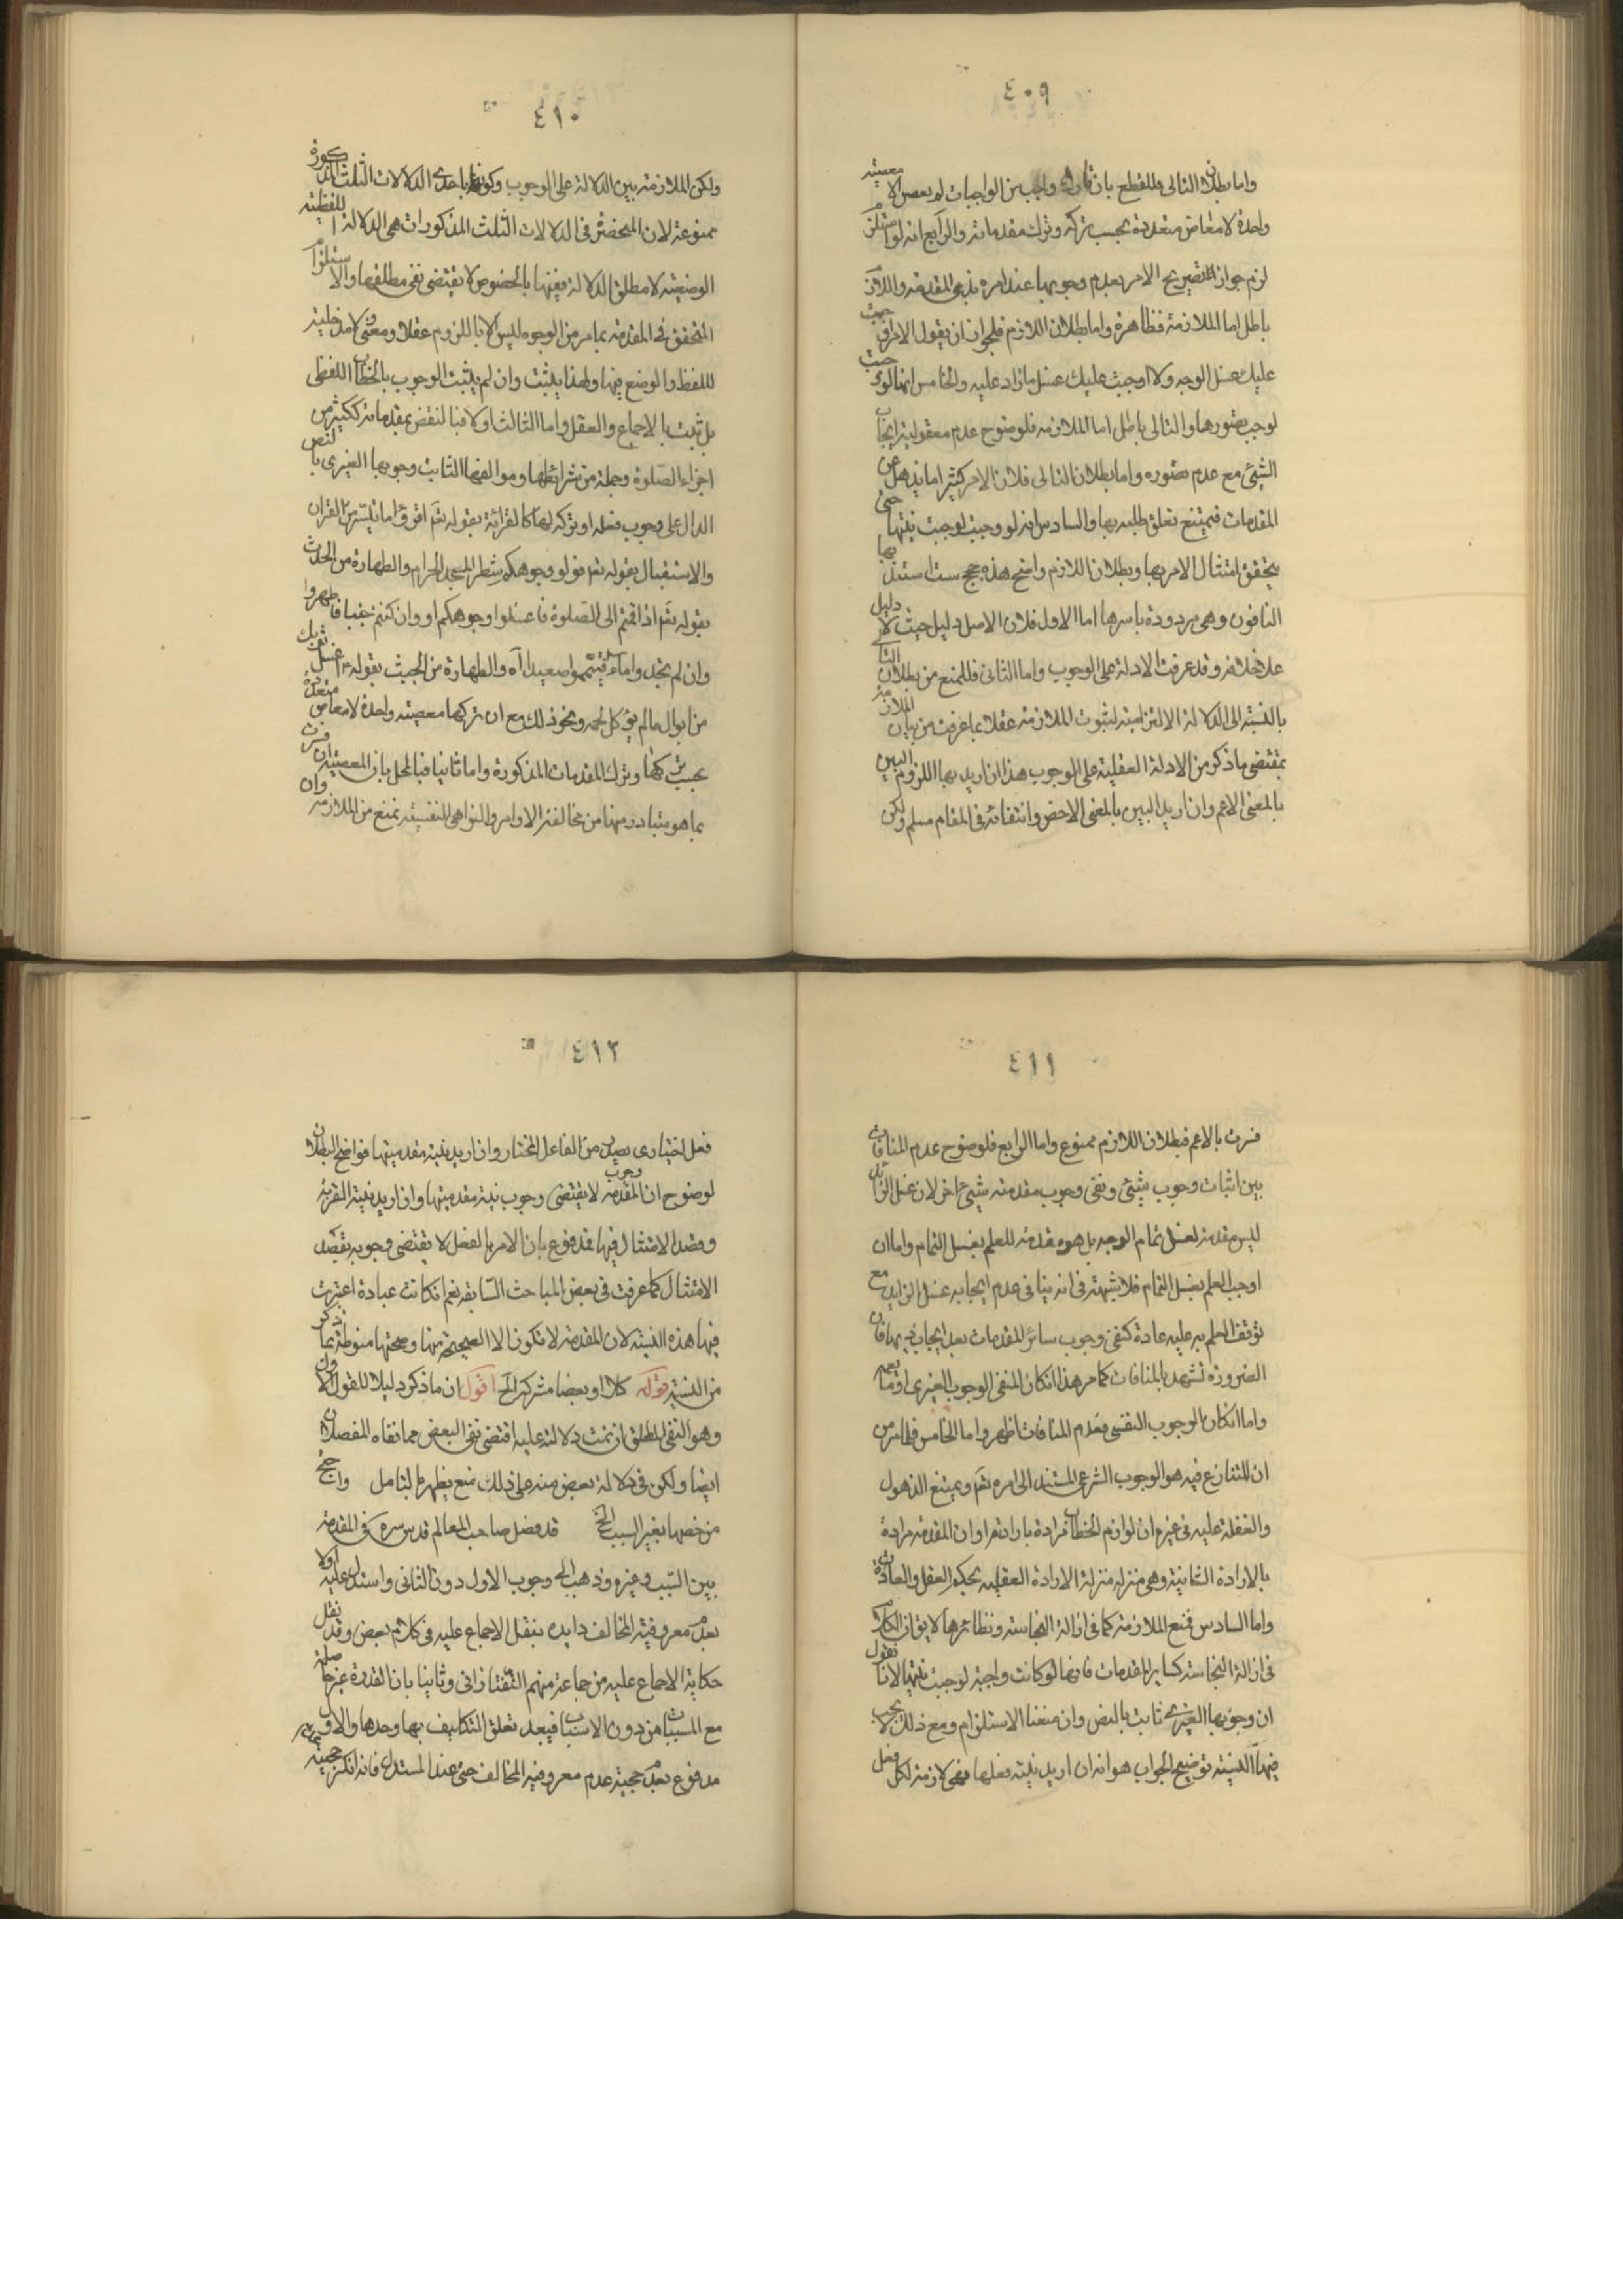 ٤٠٩
واما بطلان التالى فللقطع بان تارك واجب من الواجبات لم يعص الا معصية
واحدة لا معاص متعددة بحسب تركه وترك مقدماته والرابع انه لو استلزم
لزم جواز التصريح الامر بعدم وجوبها عند امره بذى المقدمة واللازم
باطل اما الملازمة فظاهرة واما بطلان اللازم فلجواز ان يقول الامر اوجبت
عليك غسل الوجه ولا اوجبت عليك غسل ما زاد عليه والخامس انها لو وجبت
لوجب تصورها والتالى باطل اما الملازمه فلوضوح عدم معقولية ايجاب
الشيئ مع عدم تصوره واما بطلان التالى فلان الامر كثيرا ما يذهل عن
المقدمات فيمتنع تعلق طلبه بها والسادس انه لو وجبت لوجبت نيتها حتى
يتحقق امتثال الامر بها وبطلان اللازم واضح هذه حجج ست استدل بها
النافون وهى مردودة باسرها اما الاول فلان الاصل دليل حيث لا دليل
على خلافه وقد عرفت الادلة على الوجوب واما الثانى فللمنع من بطلان التالى
بالنسبة الى الدلالة الالتزامية لثبوت الملازمة عقلا بما عرفت من بيان الملازمة
بمقتضى ما ذكر من الادلة العقلية على الوجوب هذا ان اريد بها اللزوم البين
بالمعنى الاعم وان اريد البين بالمعنى الاخص وانتفائه فى المقام مسلم ولكن
٤١٠
ولكن الملازمة بين الدلالة على الوجوب وكونها باحدى الدلالات الثلث المذكورة
ممنوعة لان المنحصر فى الدلالات الثلث المذكورات هى الدلالة اللفظية
الوضعية لا مطلق الدلالة فنفيها بالخصوص لا يقتضى نفى مطلقها والاستلزام
المتحقق فى المقدمة بما مر من الوجوه ليس الا باللزوم عقلا ومعنى ولا مدخلية
للفظ والوضع فيها ولهذا يثبت وان لم يثبت الوجوب بالخطاب اللفظى
بل ثبت بالاجماع والعقل واما الثالث اولا فبالنقض بمقدماته ككثير من
اجزاء الصلوة وجملة من شرائطها وموانعها الثابت وجوبها الغيرى بالنص
الدال على وجوب فعله او تركه لها كالقرائة بقوله تع اقرؤا ما تيسر من القران
والاستقبال بقوله تع فولوا وجوهكم شطر المسجد الحرام والطهارة من الحدث
بقوله تع اذا قمتم الى الصلوة فاغسلوا وجوهكم او وان كنتم جنبا فاطهروا
وان لم تجدوا ماء فتيمموا صعيدا اه والطهارة من الخبث بقوله ع اغسل ثوبك
من ابوال ما لم يؤكل لحمه ونحو ذلك مع ان تركها معصية واحدة لا معاص متعددة
بحسب تركها وترك المقدمات المذكورة واما ثانيا فبالحل بان المعصية ان فسرت
بما هو متبادر منها من مخالفة الاوامر والنواهى النفسية نمنع من الملازمة وان
٤١١
فسرت بالاعم فبطلان اللازم ممنوع واما الرابع فلوضوح عدم المنافات
بين اثبات وجوب شيئ ونفى وجوب مقدمته شيئ اخر لان غسل الزائد
ليس مقدمة لغسل تمام الوجه بل هو مقدمة للعلم بغسل التمام واما ان
اوجب العلم بغسل التمام فلا شبهة فى انه ينافى عدم ايجابه غسل الزايد مع
توقف العلم به عليه عادة كنفى وجوب سائر المقدمات بعد ايجاب ذيها فان
الضرورة تشهد بالمنافات كما مر هذا انكان المنفى الوجوب الغيرى او ما يعمه
واما انكان الوجوب النفسى فعدم المنافات اظهر واما الخامس فلما مر من
ان المتنازع فيه هو الوجوب الشرعى المستند الى امره تع ويمتنع الذهول
والغفلة عليه فى غيره ان لوازم الخطاب مرادة بارادته او ان المقدمة مرادة
بالارادة الشانية وهى منزلة منزلة الارادة الفعلية بحكم العقل والعادة
واما السادس فنمنع الملازمة كما فى ازالة النجاسة ونظائرها لا يق ان الكلام
فى ازالة النجاسة كساير المقدمات فانها لو كانت واجبة لوجبت نيتها لانا نقول
ان وجوبها الغيرى ثابت بالنص وان منعنا الاستلزام ومع ذلك لا يجب
فيها النية توضيح الجواب هو انه ان اريد نية فعلها فهى لازمة لكل فعل
٤١٢
فعل اختيارى يصدر من الفاعل المختار وان اريد نية مقدميتها فواضح البطلان
لوضوح ان وجوب المقدمه لا يقتضى وجوب نية مقدميتها وان اريد نية القربة
وقصد الامتثال فيها فمدفوع بان الامر بالفعل لا يقتضى وجوبه بقصد
الامتثال كما عرفت فى بعض المباحث السابقة نعم انكانت عبادة اعتبرت
فيها هذه النية لان المقدمة لا تكون الا الصحيحة منها وصحتها منوطة بما ذكر
من النية قوله كلا او بعضا مشركة الخ اقول ان ما ذكر دليلا للقول الاول
وهو النفى المطلق ان تمت دلالته عليه اقتضى نفى البعض مما نفاه المفصلان
ايضا ولكن فى دلالة بعض منه على ذلك منع يظهر بالتامل واحتج
من خصها بغير السبب الخ قد فصل صاحب المعالم قدس سره فى المقدمة
بين السبب وغيره وذهب الى وجوب الاول دون الثانى واستدل عليه اولا
بعدم معروفية المخالف وايده بنقل الاجماع عليه فى كلام بعض وقد نقل
حكاية الاجماع عليه من جماعة منهم التفتازانى وثانيا بان القدرة غير حاصلة
مع المسببات من دون الاسباب فيبعد تعلق التكليف بها وحدها والاول
مدفوع بعدم حجية عدم معروفية المخالف حتى عند المستدل فانه انكر حجية